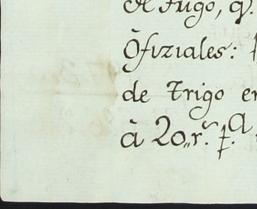 de Trigo, q.
Ofiziales:
de Trigo en
à 20,,r.ˢ p.ª